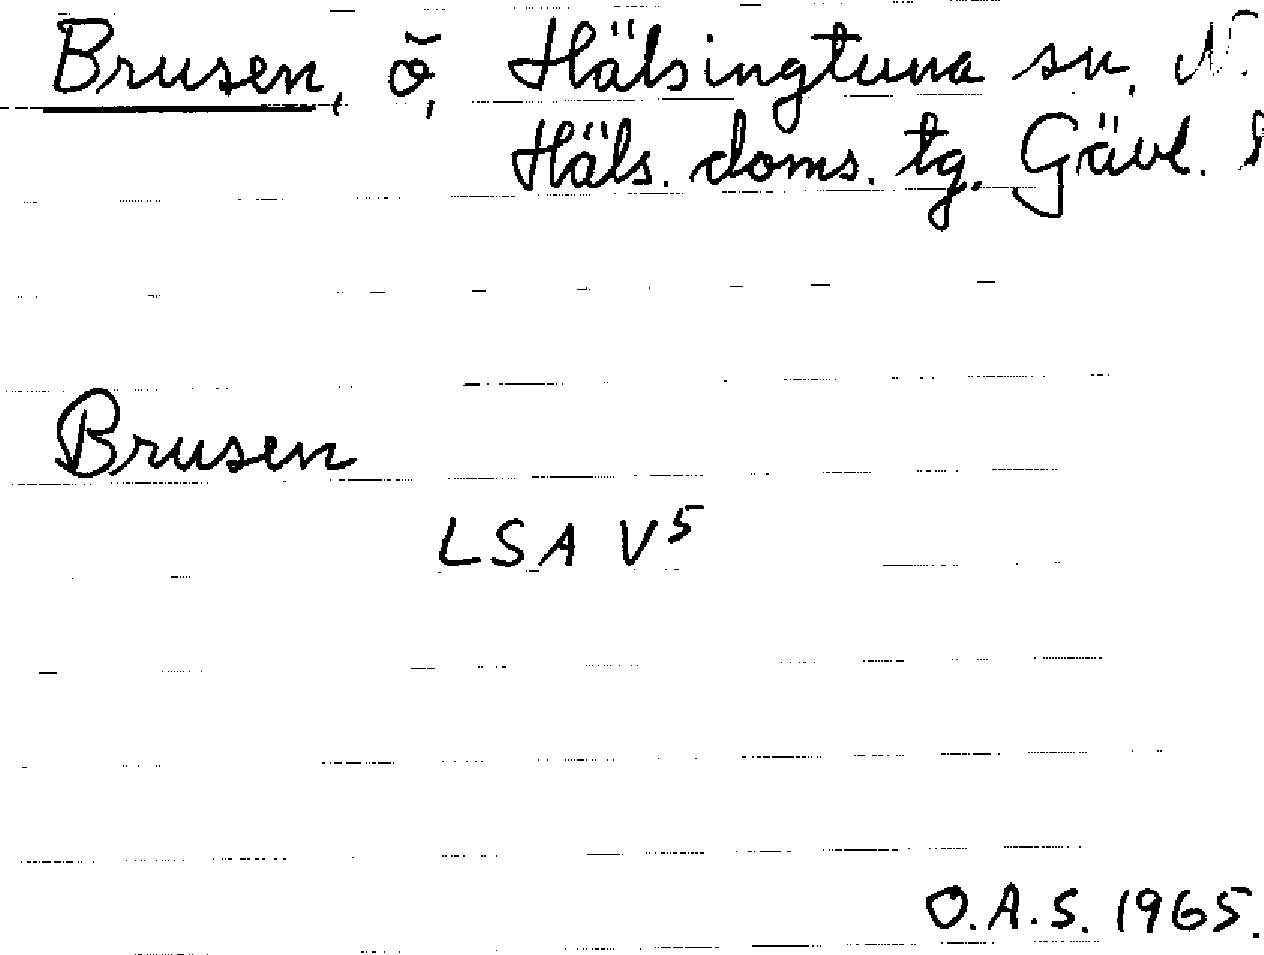 Brusen, ö, Hälsingtuna sn, N.
Häls. doms. tg. Gävl. l
Brusen
LSA V⁵
O.A.S. 1965.